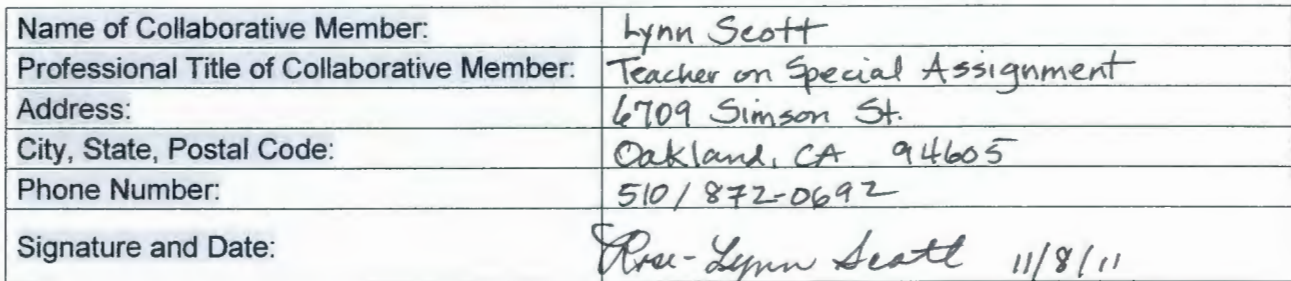 Name of Collaborative Member: Lynn Scott
Professional Title of Collaborative Member: Teacher on Special Assignment
Address: 6709 Simson St.
City, State, Postal Code: Oakland, CA 94605
Phone Number: 510/872-0692
Signature and Date: Rose-Lynn Scott 11/8/11